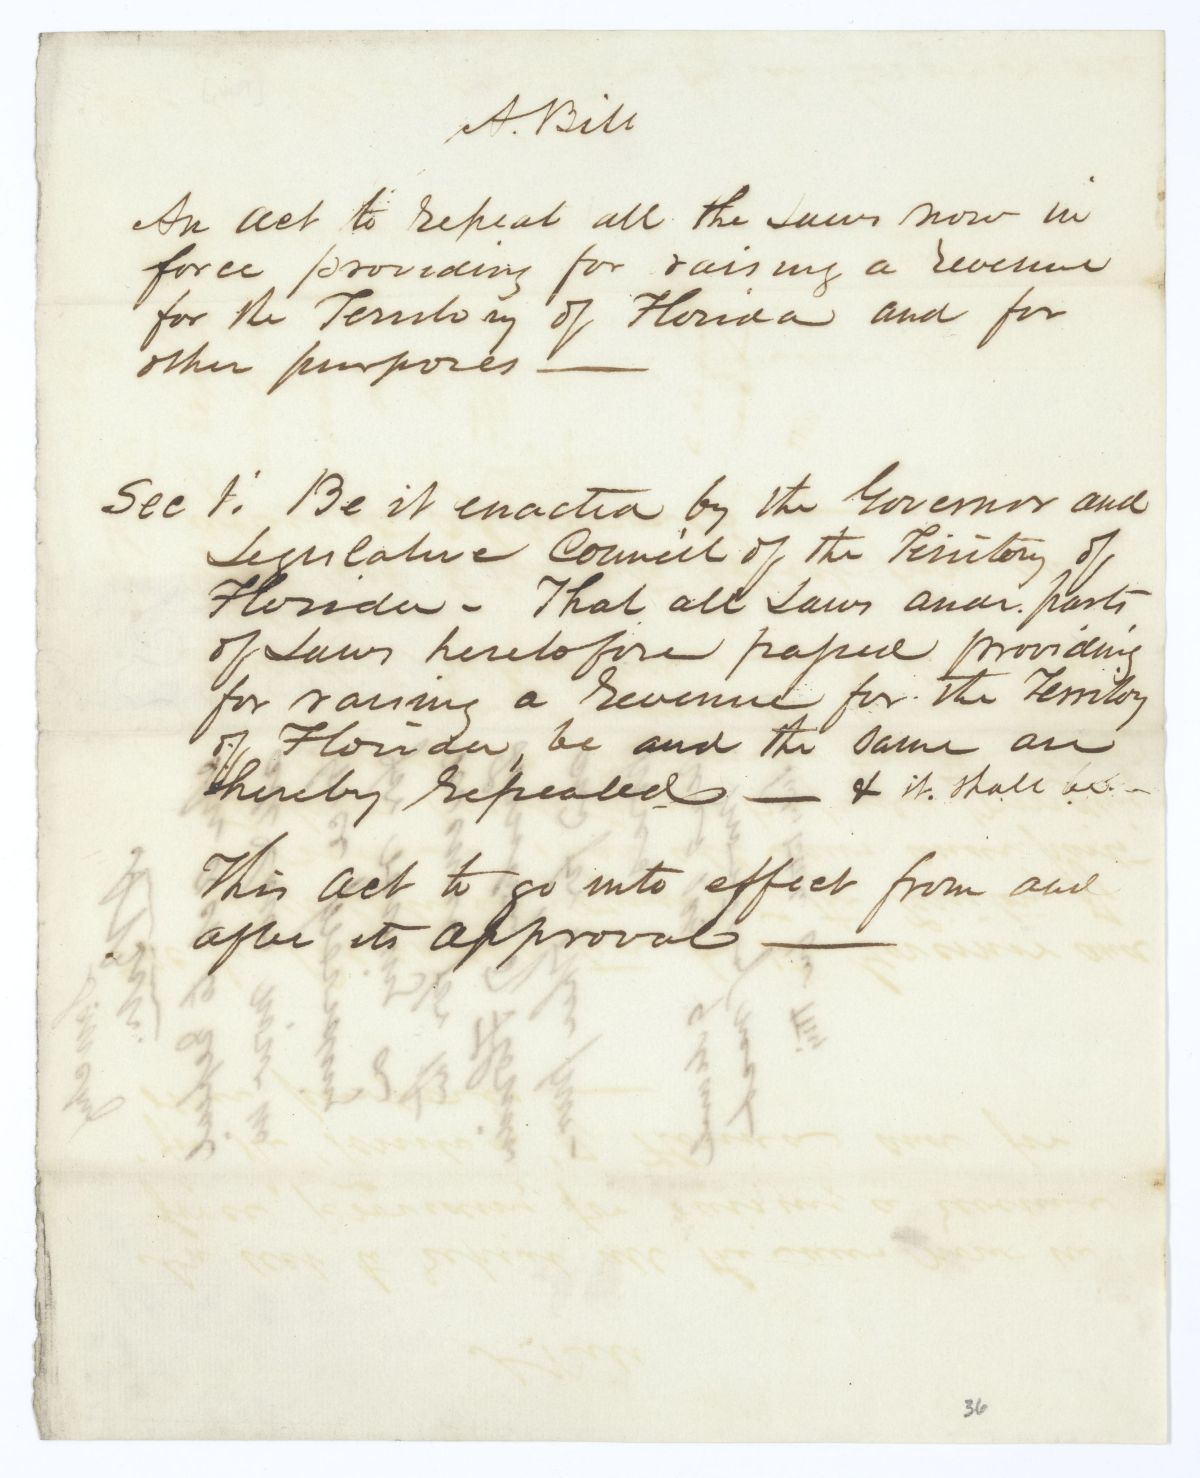 A. Bill
An act to repeal all the Laws now in
force providing for raising a revenue
for the Territory of Florida and for
other purposes —
Sec 1. Be it enacted by the Governor and
Legislative Council of the Territory of
Florida - That all Laws and parts
of Laws heretofore passed providing
for raising a revenue for the Territory
of Florida, be and the same are
hereby repealed — & it shall be
This act to go into effect from and
after its approval —
36